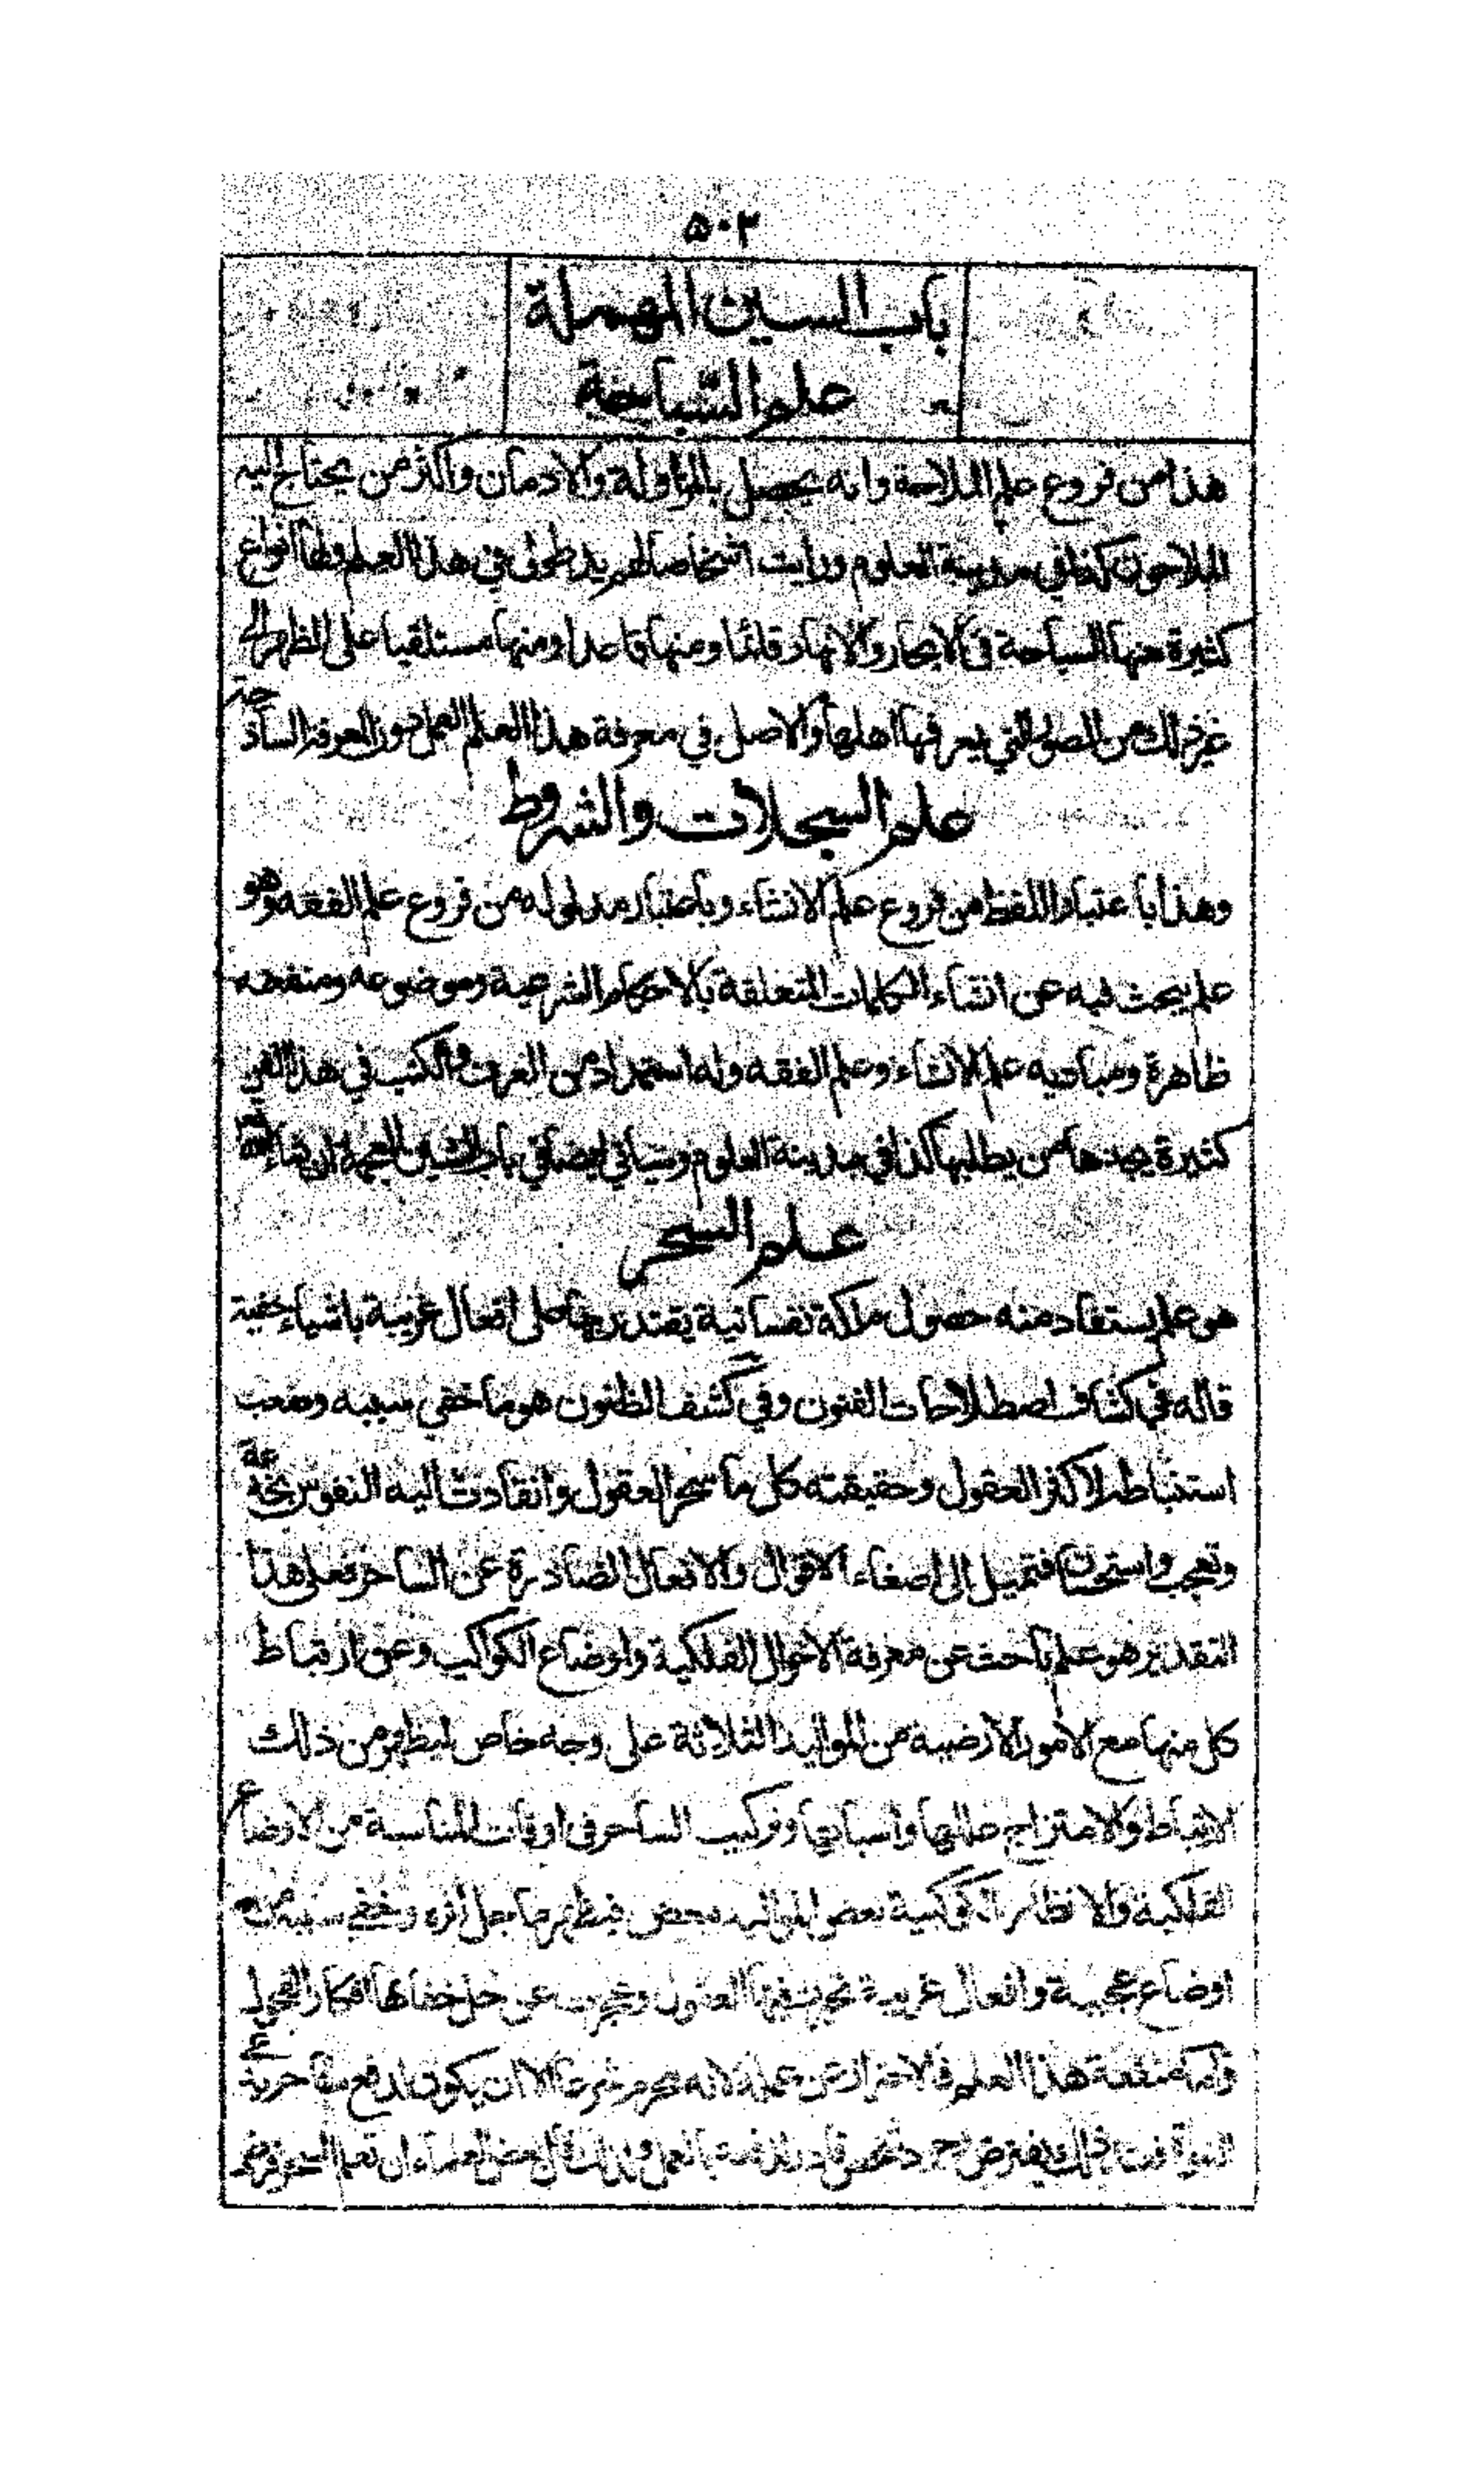 ٥٠٢
باب السين المهملة
علم السّباحة
هذا من فروع علم الملاحة وانه يحصل بالمزاولة والادمان واكثر من يحتاج اليه
الملاحون كذا في مدينة العلوم ورايت اشخاصا لهم يد طولى في هذا العلم ولها انواع
كثيرة منها السباحة في الابحار والانهار قائما ومنها قاعدا ومنها مستلقيا على الظهر الى
غير ذلك من الصور التي يعرفها اهلها والاصل في معرفة هذا العلم العمل دون المعرفة الساذجة
علم السجلات والشروط
وهذا باعتبار اللفظ من فروع علم الانشاء وباعتبار مدلوله من فروع علم الفقه وهو
علم يبحث فيه عن انشاء الكلمات المتعلقة بالاحكام الشرعية وموضوعه ومنفعته
ظاهرة ومباديه علم الانشاء وعلم الفقه وله استمداد من العرف والكتب في هذا الفن
كثيرة يجدها من يطلبها كذا في مدينة العلوم وسياتي ايضا في باب الشين المعجمة ان شاء الله
علم السحر
هو علم يستفاد منه حصول ملكة نفسانية يقتدر بها على افعال غريبة باشياء خفية
قاله في كشاف اصطلاحات الفنون وفي كشف الظنون هو ما خفي سببه وصعب
استنباطه لاكثر العقول وحقيقته كل ما سحر العقول وانقادت اليه النفوس بخدعة
وتعجب واستحسان فتميل الى اصغاء الاقوال والافعال الصادرة عن الساحر فعلى هذا
التقدير هو علم باحث عن معرفة الاحوال الفلكية واوضاع الكواكب وعن ارتباط
كل منها مع الامور الارضية من المواليد الثلاثة على وجه خاص ليظهر من ذلك
الارتباط والامتزاج عللها واسبابها وتركيب الساحر في اوقات المناسبة من الاوضاع
الفلكية والانظار الكوكبية بعض المواليد ببعض فيظهر ما جل اثره وخفي سببه من
اوضاع عجيبة وافعال غريبة تحيرت فيها العقول وعجزت عن حل خفاها افكار الفحول
واما منفعة هذا العلم فالاحتراز عن عمله لانه محرم شرعا الا ان يكون لدفع ساحر يدعي
النبوة فعند ذلك يفترض وجود شخص قادر لدفعه بالعمل ولذلك قال بعض العلماء ان تعلم السحر فرض